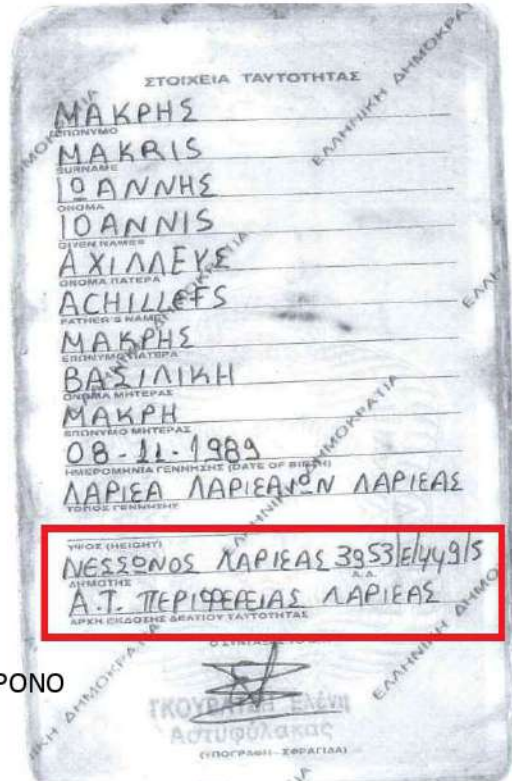 ΣΤΟΙΧΕΙΑ ΤΑΥΤΟΤΗΤΑΣ
ΜΑΚΡΗΣ
ΕΠΩΝΥΜΟ
MAKRIS
SURNAME
ΙΩΑΝΝΗΣ
ΟΝΟΜΑ
IOANNIS
GIVEN NAMES
ΑΧΙΛΛΕΥΣ
ΟΝΟΜΑ ΠΑΤΕΡΑ
ACHILLEFS
FATHER'S NAME
ΜΑΚΡΗΣ
ΕΠΩΝΥΜΟ ΠΑΤΕΡΑ
ΒΑΣΙΛΙΚΗ
ΟΝΟΜΑ ΜΗΤΕΡΑΣ
ΜΑΚΡΗ
ΕΠΩΝΥΜΟ ΜΗΤΕΡΑΣ
08-11-1989
ΗΜΕΡΟΜΗΝΙΑ ΓΕΝΝΗΣΗΣ (DATE OF BIRTH)
ΛΑΡΙΣΑ ΛΑΡΙΣΑΙΩΝ ΛΑΡΙΣΑΣ
ΤΟΠΟΣ ΓΕΝΝΗΣΗΣ
ΥΨΟΣ (HEIGHT)
ΝΕΣΣΩΝΟΣ ΛΑΡΙΣΑΣ 3953/Ε/449/5
ΔΗΜΟΤΗΣ Α.Α.
Α.Τ. ΠΕΡΙΦΕΡΕΙΑΣ ΛΑΡΙΣΑΣ
ΑΡΧΗ ΕΚΔΟΣΗΣ ΔΕΛΤΙΟΥ ΤΑΥΤΟΤΗΤΑΣ
ΡΟΝΟ
Ελένη
Αστυφύλακας
(ΥΠΟΓΡΑΦΗ - ΣΦΡΑΓΙΔΑ)
ΕΛΛΗΝΙΚΗ ΔΗΜΟΚΡΑΤΙΑ